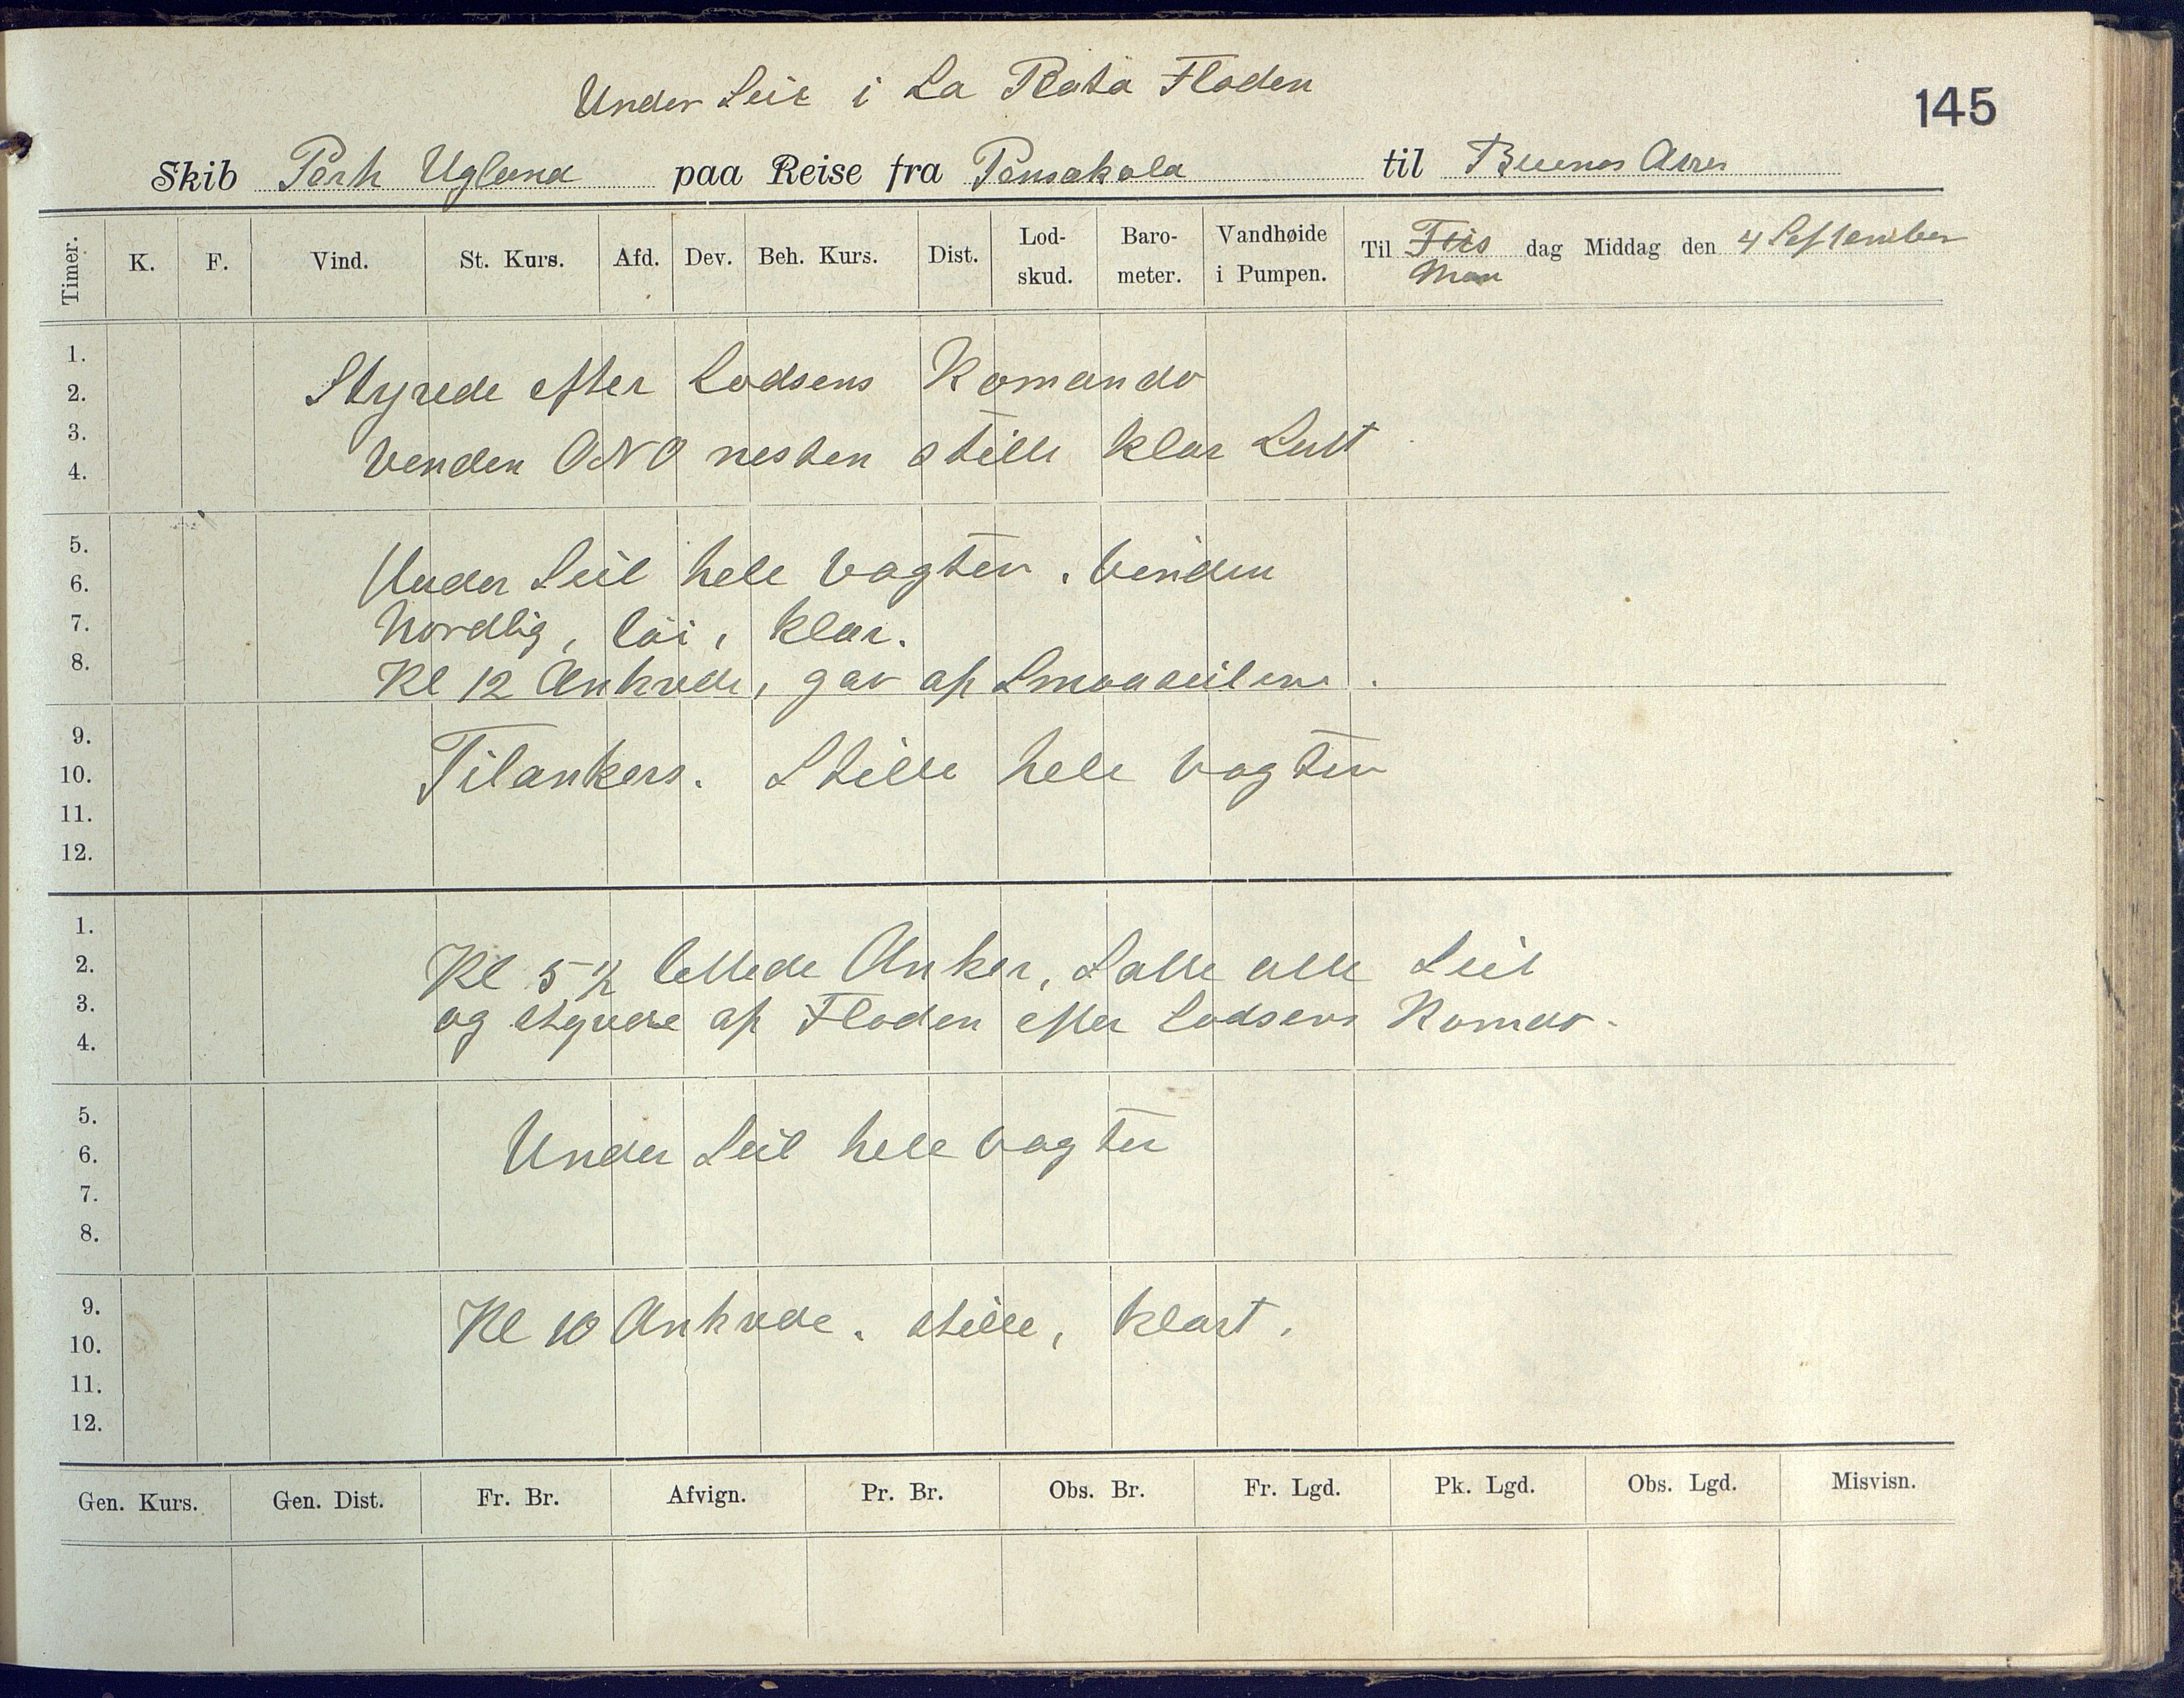 Under Seil i La Plata Floden
145
Skib Perh Ugland paa Reise fra Pensakola til Buenos Aires
Timer. K. F. Vind. St. Kurs. Afd. Dev. Beh. Kurs. Dist. Lod-skud. Baro-meter. Vandhøide i Pumpen. Til Tirs dag Middag den 4 September
Man
1.
2. Styrede efter Lodsens Komando
3.
4. Vinden ONO nesten stille klar Luft
5.
6. Under Seil hele Vagten. Vinden
7. Nordlig, löi, klar.
8. Kl 12 Ankrede, gav af Smaaseilene.
9.
10. Tilankers. Stille hele Vagten
11.
12.
1.
2. Kl 5 ½ lettede Anker, Satte alle Seil
3. og styrede af Floden efter Lodsens Komdo.
4.
5.
6. Under Seil hele Vagten
7.
8.
9.
10. Kl 10 Ankrede. stille, klart.
11.
12.
Gen. Kurs. Gen. Dist. Fr. Br. Afvign. Pr. Br. Obs. Br. Fr. Lgd. Pk. Lgd. Obs. Lgd. Misvisn.